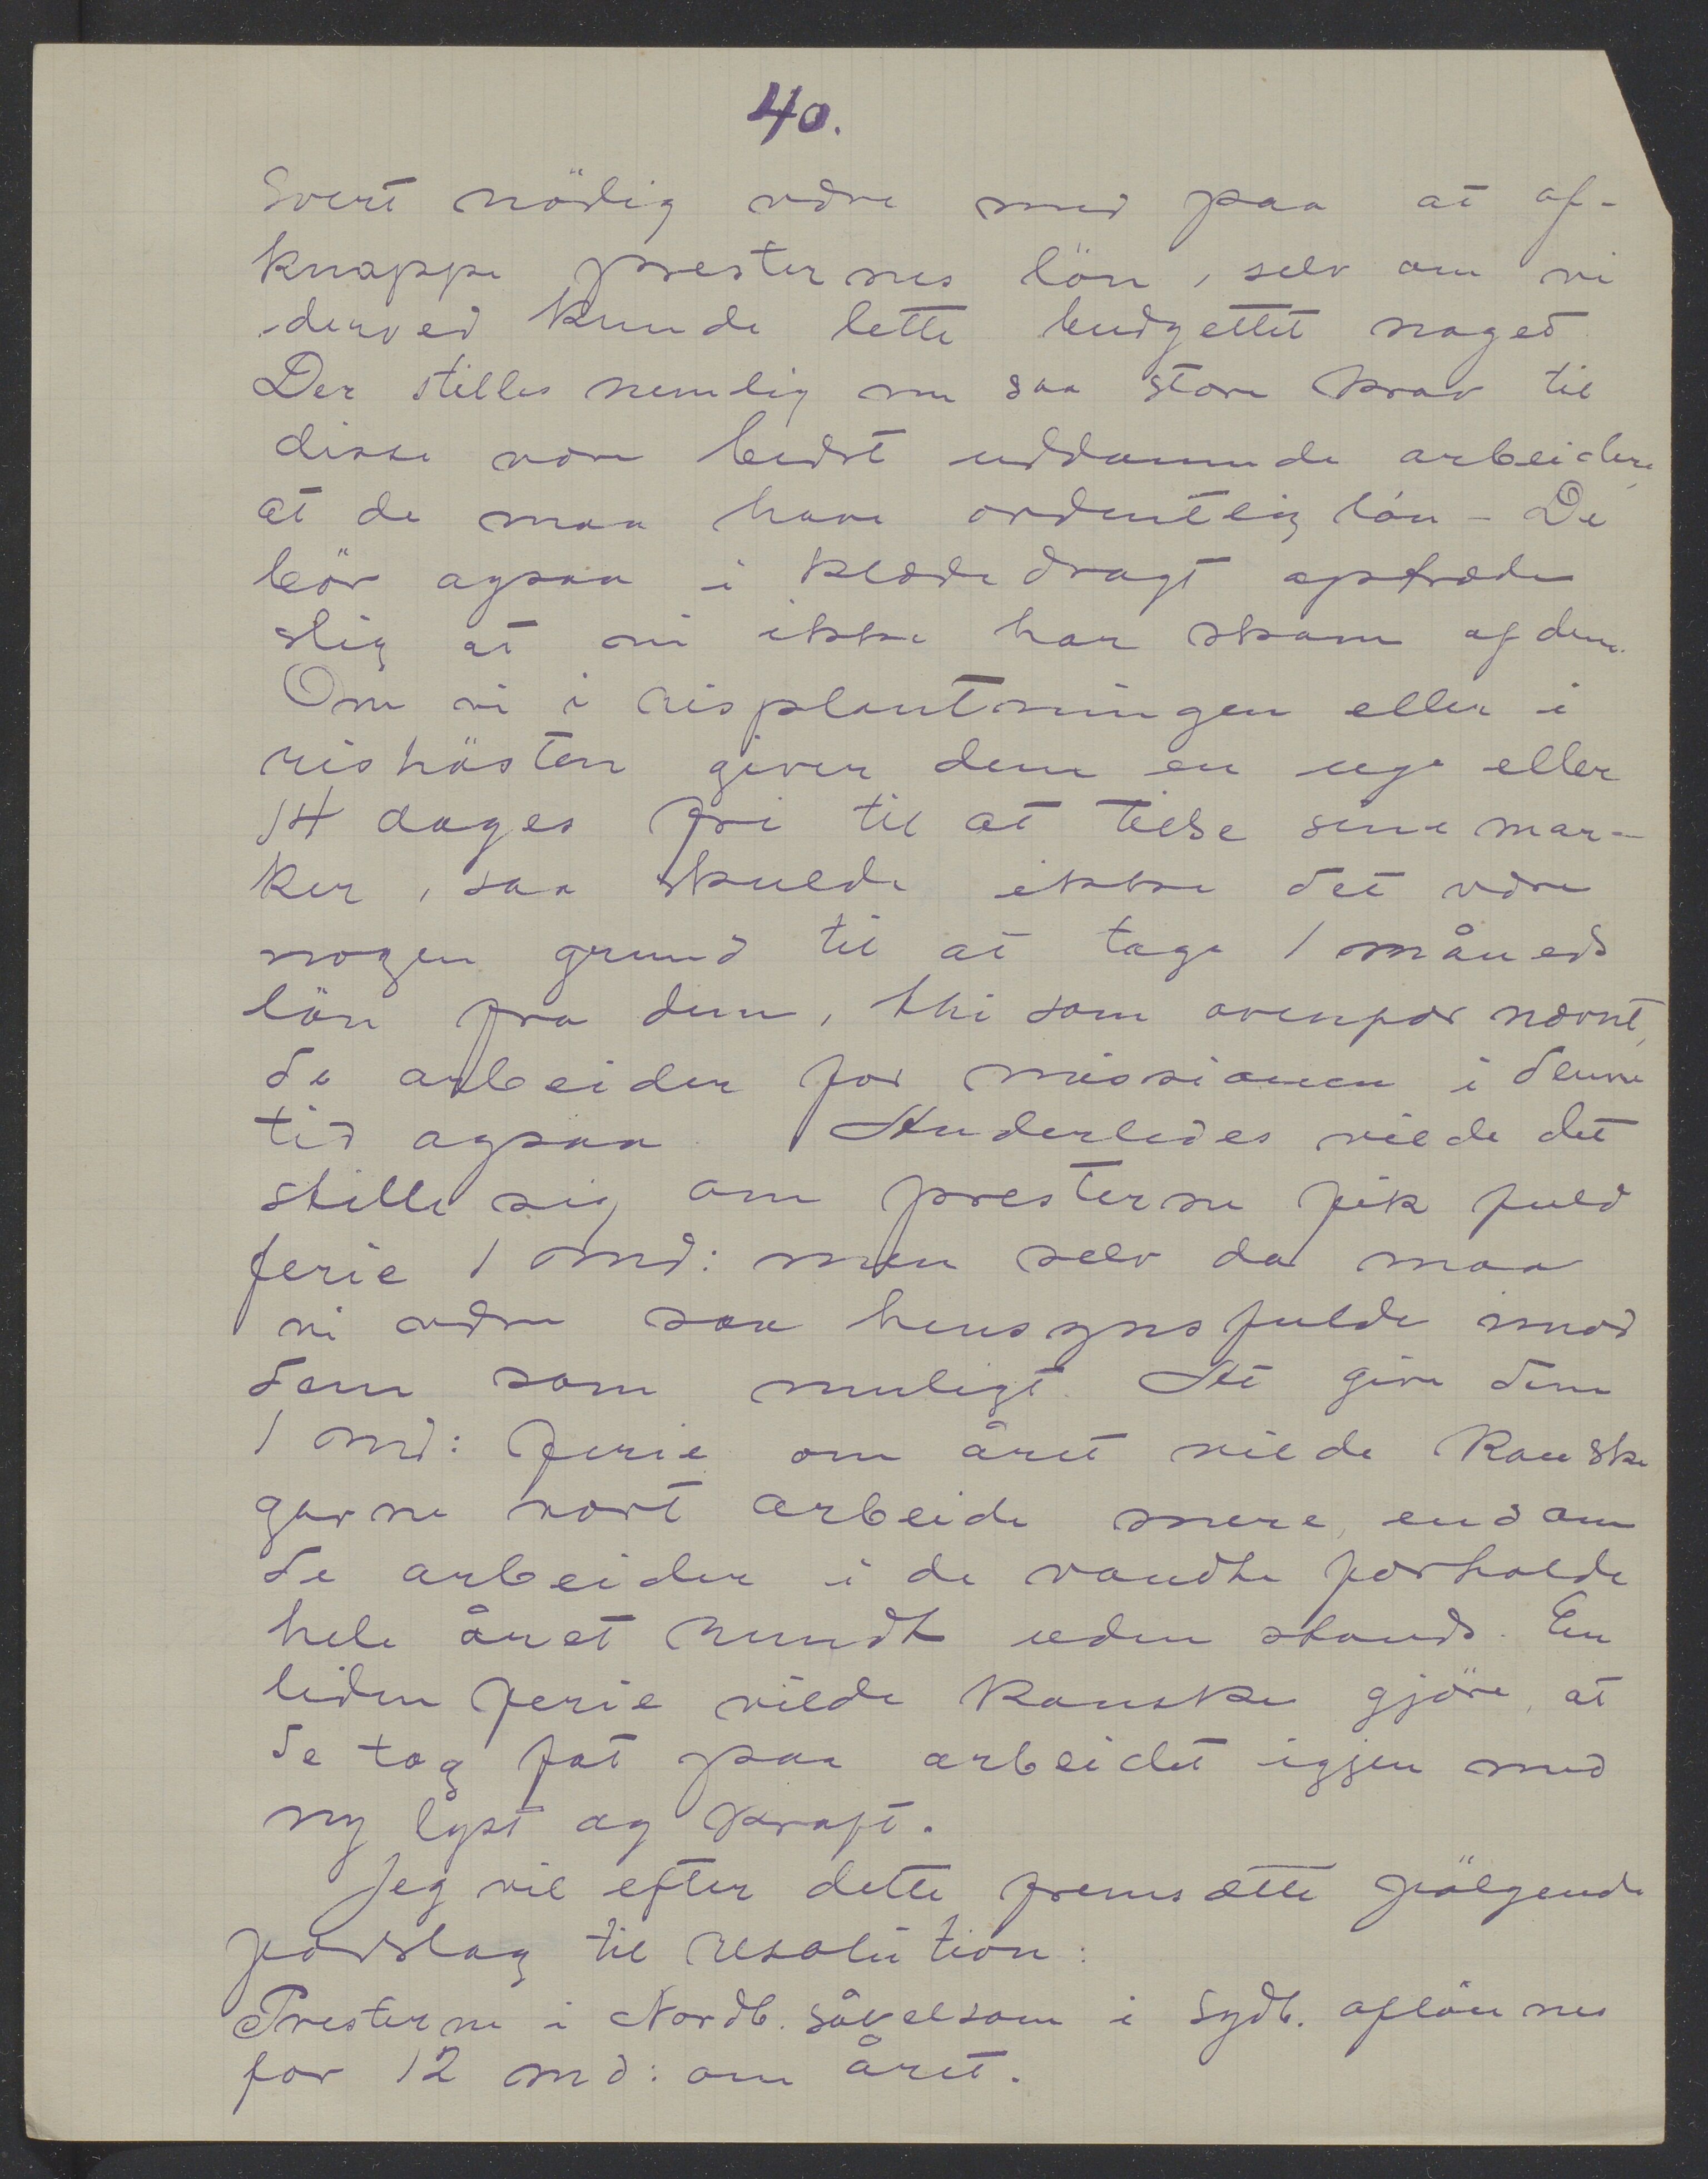 40.
Svert nödig være med paa at af-
knappe presternes lön, selv om vi
derved kunde lette budgettet noget
Der stilles nemlig nu saa store krav til
disse vore bedst uddannede arbeidere,
at de maa have ordentlig lön - De
bör ogsaa i klædedragt optræde
slig at vi ikke har skam af dem.
Om vi i risplantningen eller i
rishösten giver dem en uge eller
14 dages fri til at tilse sine mar-
ker, saa skulde ikke det være
nogen grund til at tage 1 måneds
lön fra dem, thi som ovenfor nævnt,
de arbeider for missionen i denne
tid ogsaa. Anderledes vilde det
stille sig om presterne fik fuld
ferie 1 md: men selv da maa
vi være saa hensynsfulde imod
dem som muligt. At give dem
1 md: ferie om året vilde kanske
gavne vort arbeide mere, end om
de arbeider i de vandte forholde
hele året rundt uden stands. En
liden ferie vilde kanske gjöre, at
de tog fat paa arbeidet igjen med
ny lyst og kraft.
Jeg vil efter dette fremsætte fölgende
forslag til resolution:
Presterne i Nordb. såvelsom i Sydb. aflönnes
for 12 md: om året.